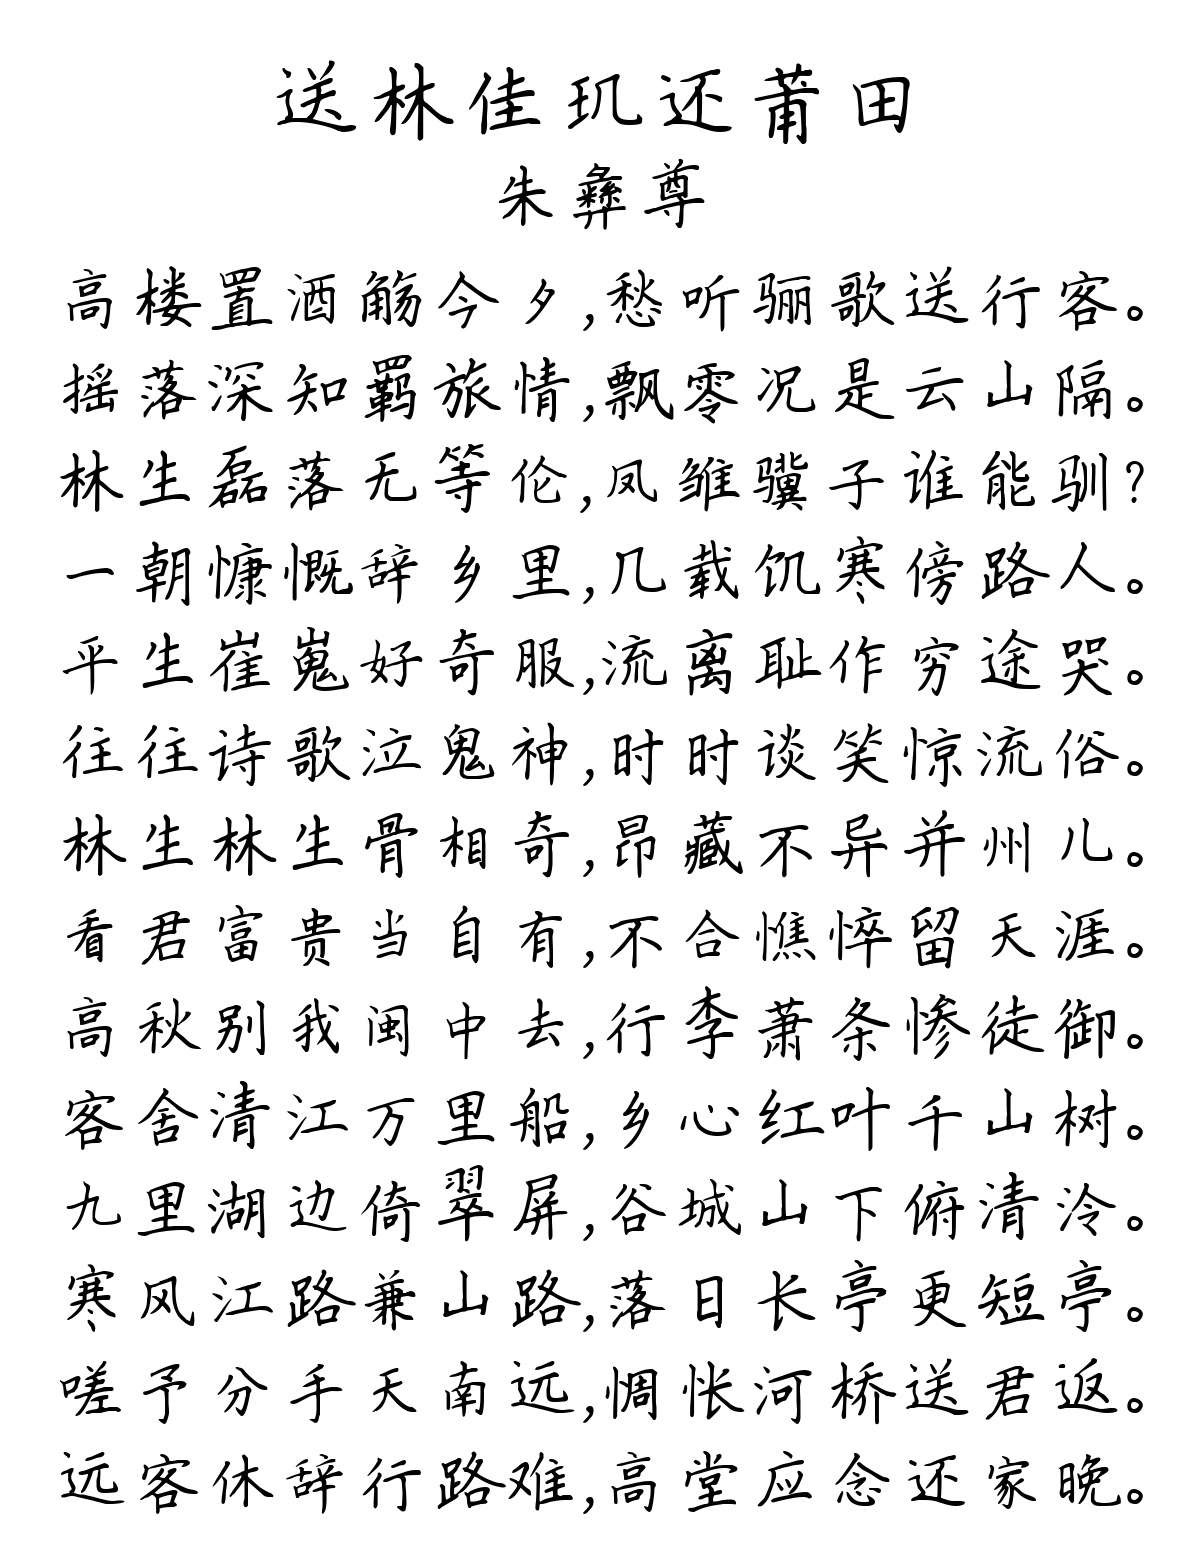 送林佳玑还莆田
朱彝尊
高楼置酒觞今夕,愁听骊歌送行客。
摇落深知羁旅情,飘零况是云山隔。
林生磊落无等伦,凤雏骥子谁能驯?
一朝慷慨辞乡里,几载饥寒傍路人。
平生崔嵬好奇服,流离耻作穷途哭。
往往诗歌泣鬼神,时时谈笑惊流俗。
林生林生骨相奇,昂藏不异并州儿。
看君富贵当自有,不合憔悴留天涯。
高秋别我闽中去,行李萧条惨徒御。
客舍清江万里船,乡心红叶千山树。
九里湖边倚翠屏,谷城山下俯清泠。
寒风江路兼山路,落日长亭更短亭。
嗟予分手天南远,惆怅河桥送君返。
远客休辞行路难,高堂应念还家晚。